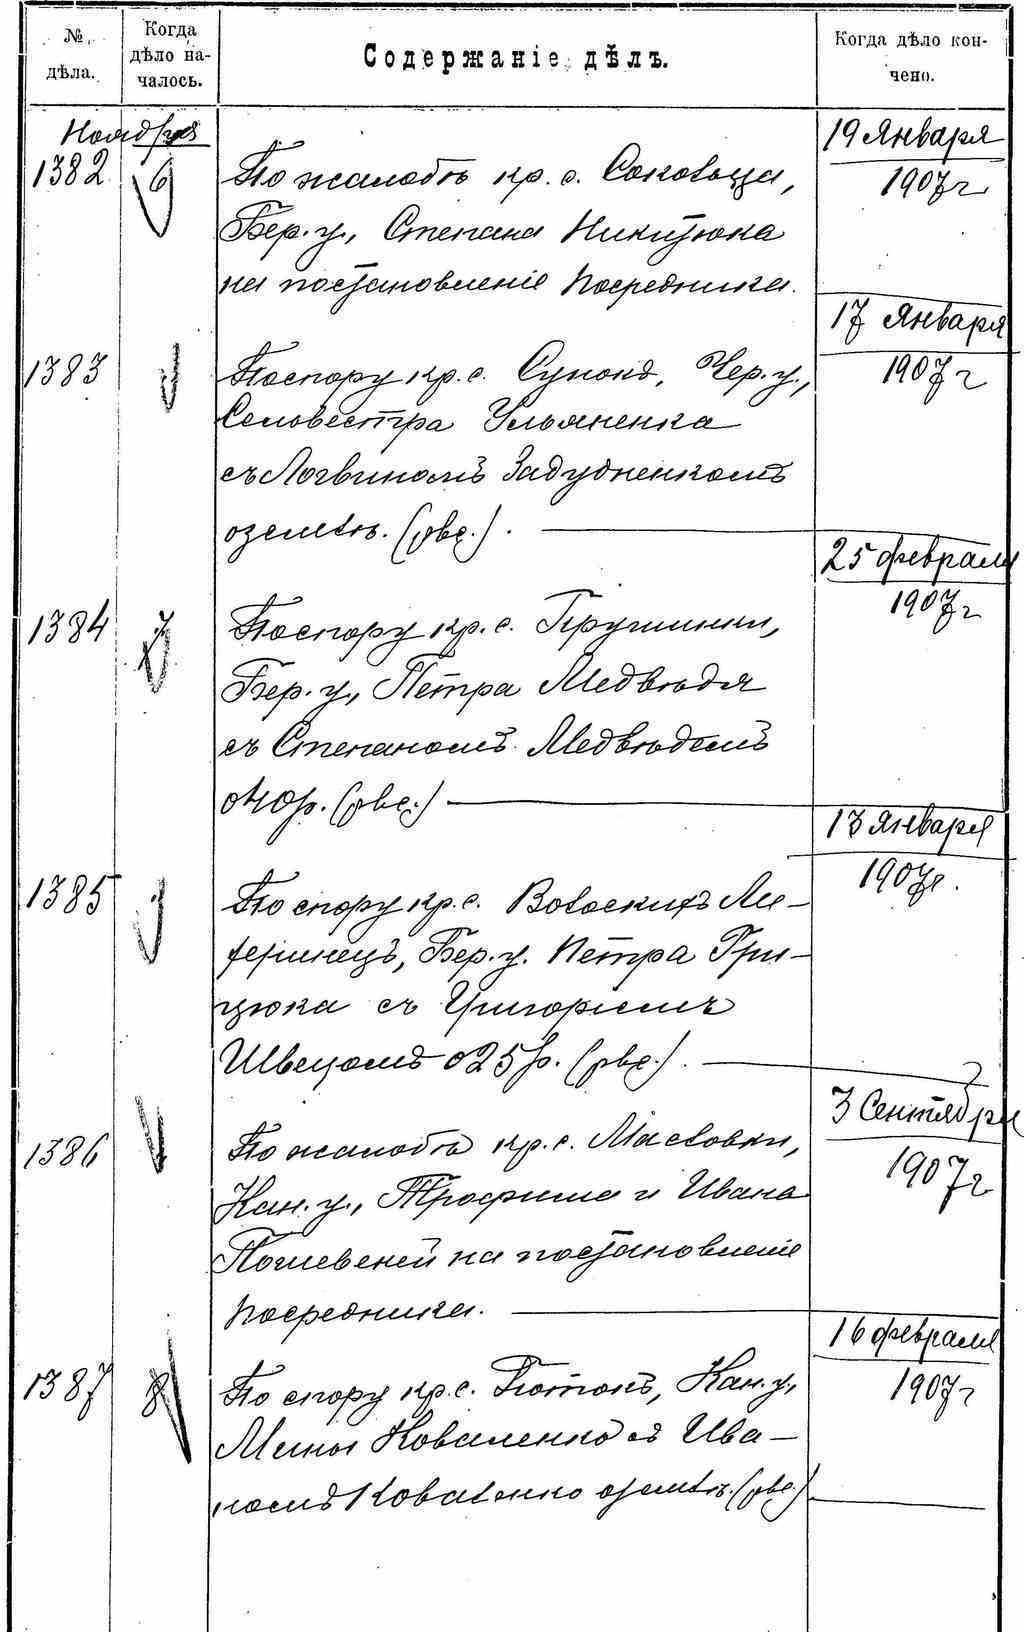 № дѣла.
Когда дѣло на-
чалось.
Содержаніе дѣлъ.
Когда дѣло кон-
чено.
Ноября
1382
6
По жалобѣ кр. с. Соколъца,
Бер. у., Степана Никитюка
на постановленіе Посредника.
19 Января
1907 г
1383
По спору кр. с.
Чер. у.,
Селовестра Ульяненка
съ Логвиномъ Задудненкомъ
о землѣ. (рвс.).
17 Января
1907 г
1384
7
По спору кр. с. Пружинки,
Бер. у., Петра Медвѣдя
съ Степаномъ Медвѣдемъ
о 40 р. (рвс.)
25 февраля
1907 г
1385
По спору кр. с. Волоскихъ
Бер. у. Петра Гри-
цюка съ Григоріемъ
Швецомъ о 25 р. (рвс.).
13 Января
1907 г.
1386
По жалобѣ кр. с. Масловки,
Кан. у., Трофима и Ивана
на постановленіе
Посредника.
3 Сентября
1907 г
1387
8
По спору кр. с.
Кан. у.,
Мины Коваленко съ Ива-
номъ Коваленко о землѣ. (рвс.)
16 февраля
1907 г